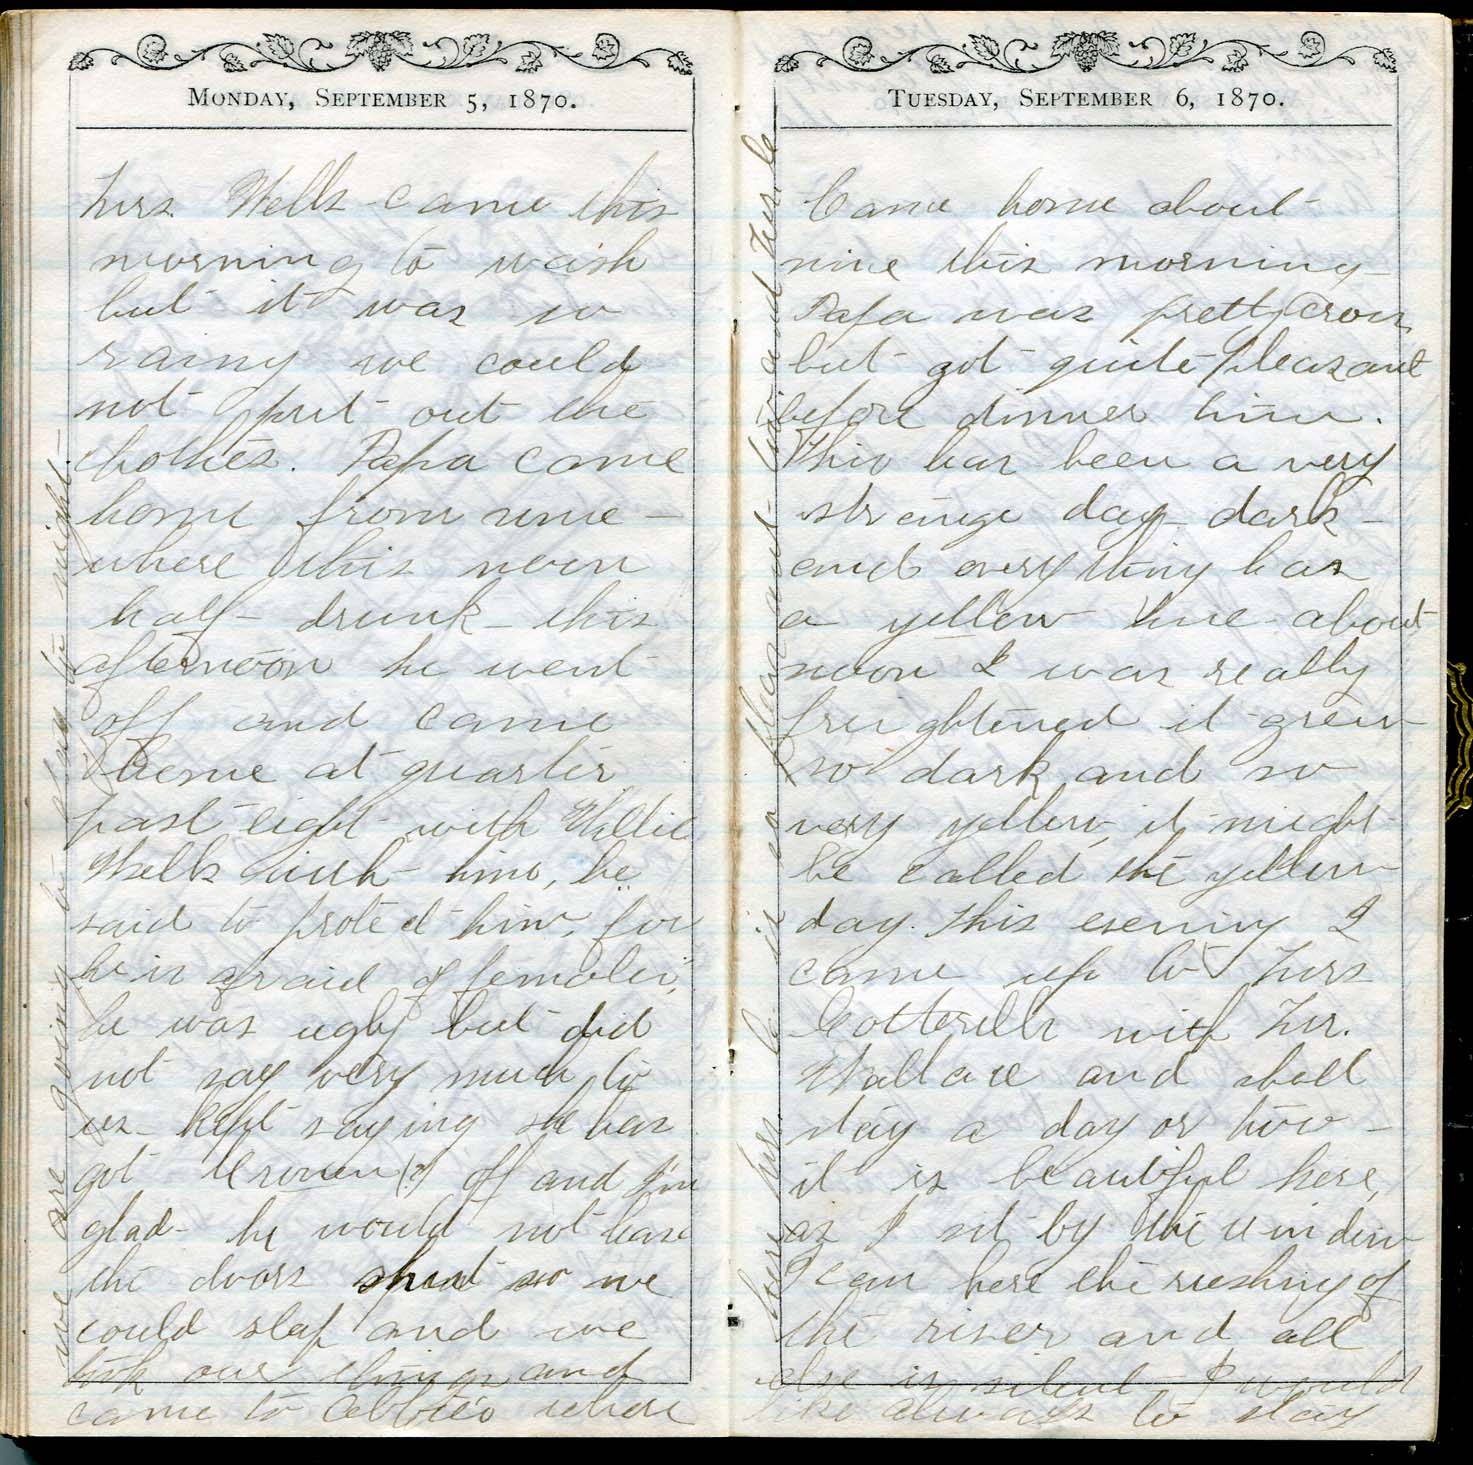 MONDAY, SEPTEMBER 5, 1870.
Mrs. Wells came this
morning to wash
but it was so
rainy we could
not put out the
clothes. Papa came
home from some-
where this noon
half-drunk this
afternoon he went
off and came
home at quarter
past eight with Willie
Wells with him, he
said to protect him, "for
he is afraid of females",
he was ugly but did
not say very much to
us kept saying she has
got (?) off and I'm
glad - he would not have
the doors shut so we
could slep and we
took our things and
came to Abbie's where
we are going to stay to night
TUESDAY, SEPTEMBER 6, 1870.
Came home about
nine this morning
Papa was pretty cross,
but got quite pleasant
before dinner time.
This has been a very
strange day dark-
and everything has
a yellow hue about
noon I was really
freightened it grew
so dark and so
very yellow, it might
be called the yellow
day. This evening I
came up to Mrs
Cotterells with Mr.
Wallace and shall
stay a day or two-
it is beautiful here,
as I sit by the window
I can here the rushing of
the river and all
else is silent I would
like always to stay
here, Mrs. C. is so pleasant too and Mr C